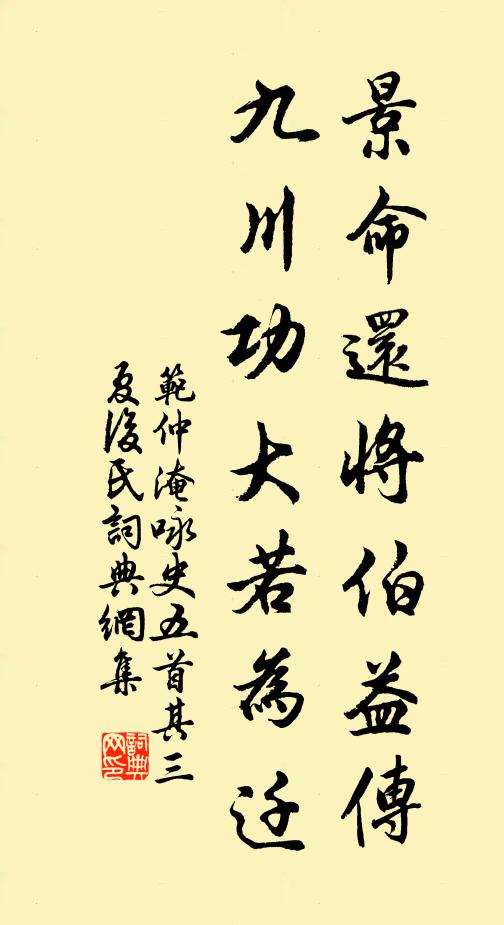 景命還將伯益傳
九川功大若為迁
範仲淹咏史五首其三
夏後氏詞典網集
詞典网印